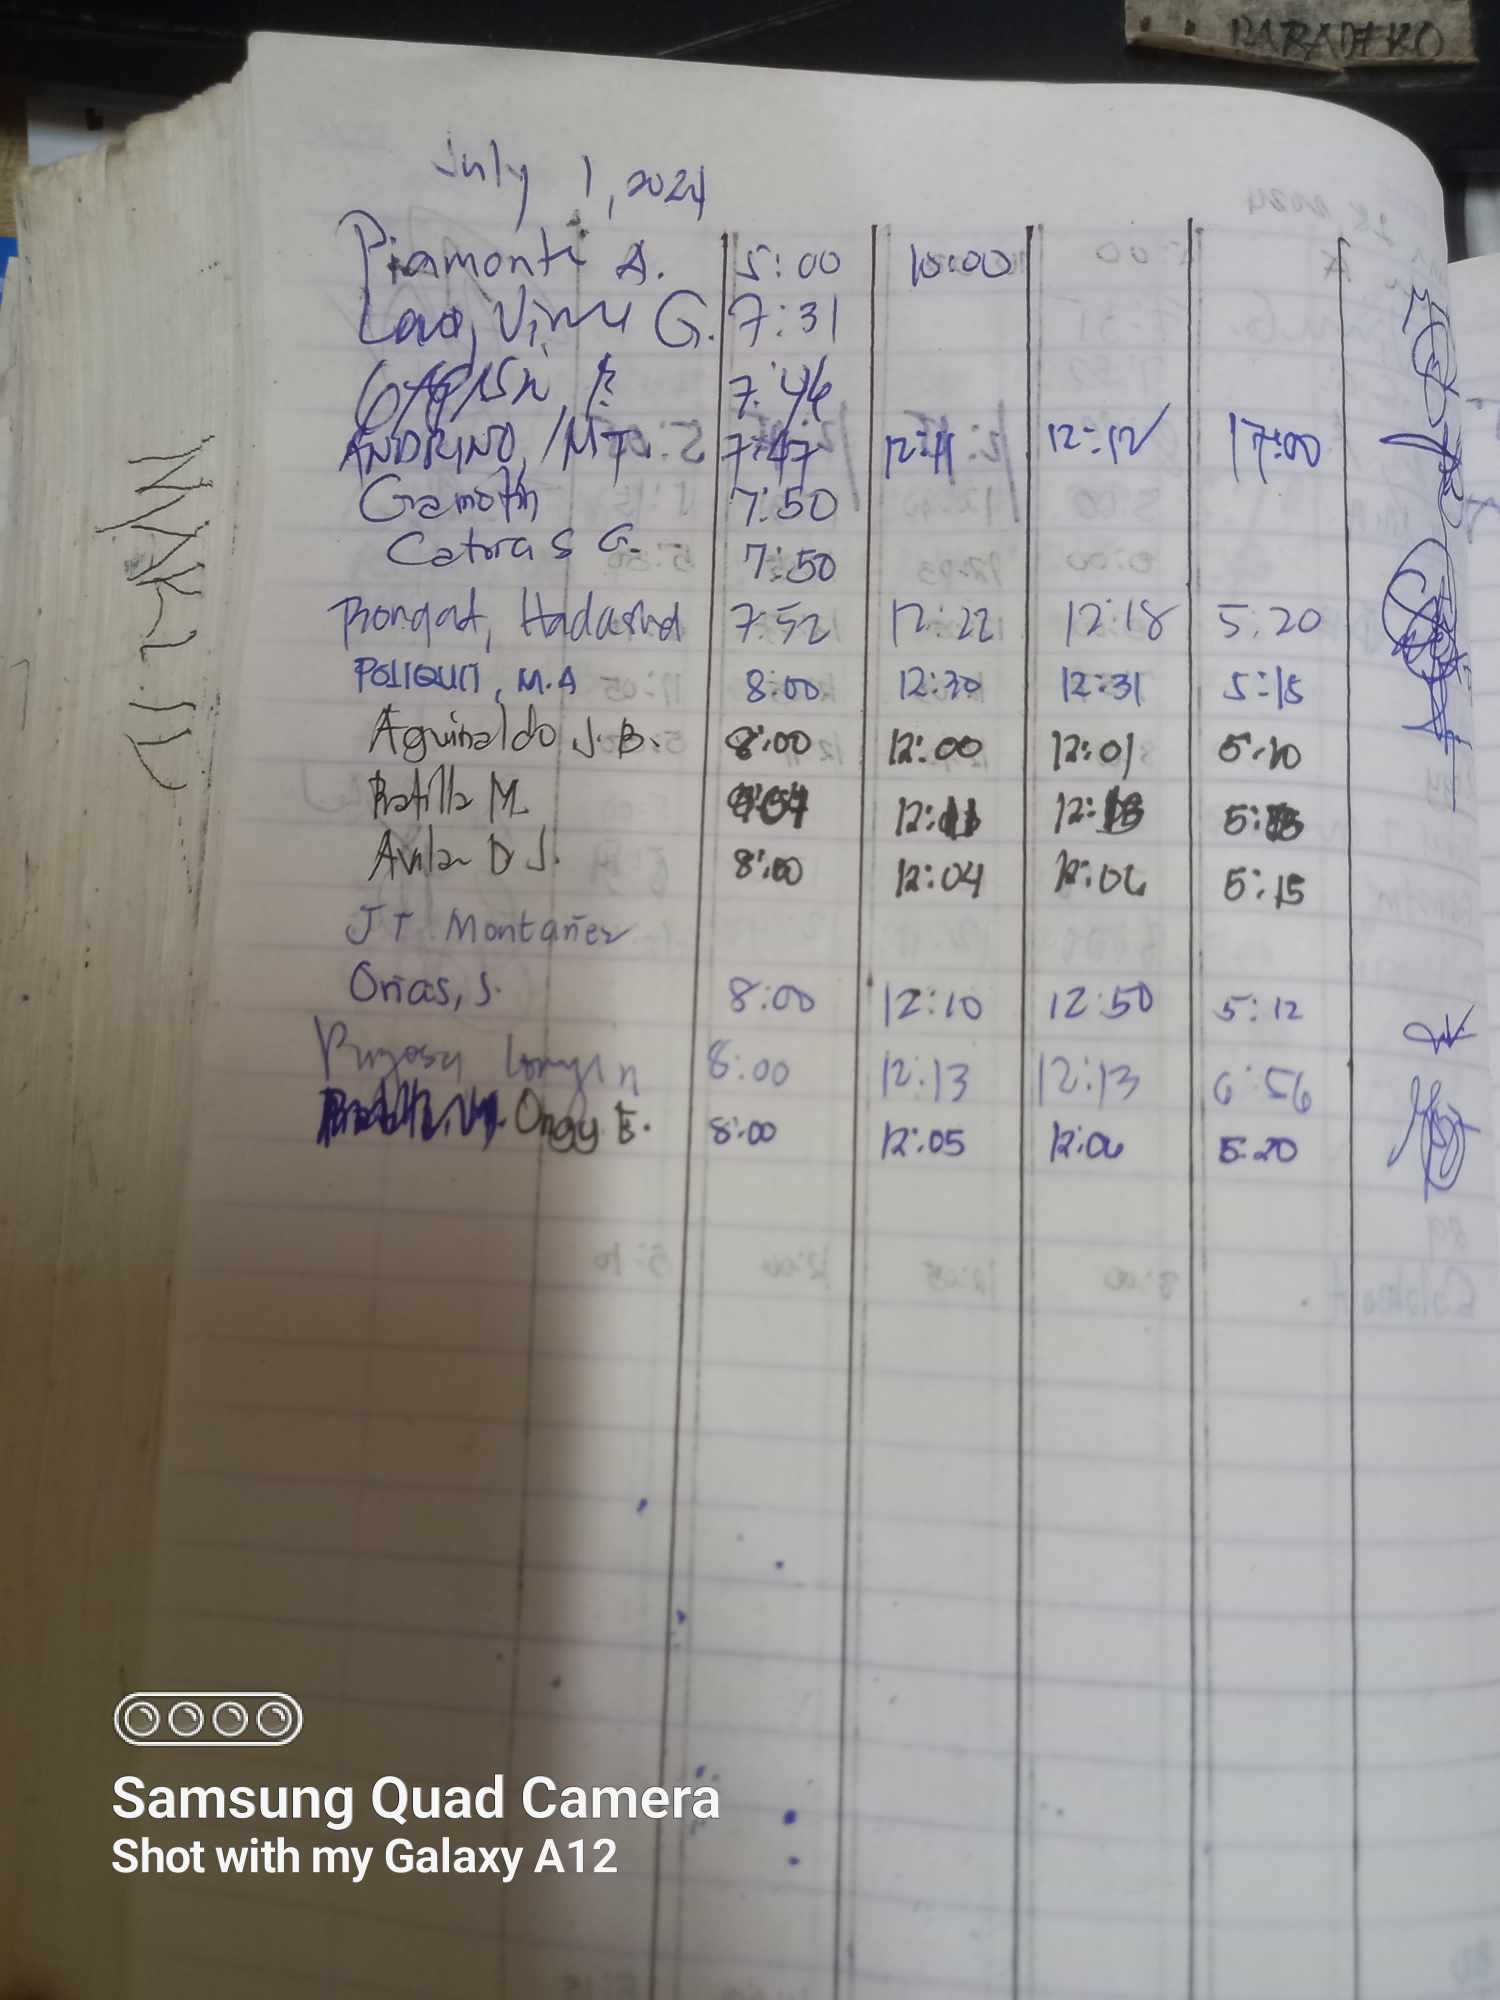 BARADERO
July 1, 2024
Piamonte A. 5:00 10:00
Lao, G. 7:31
7:46
ANDRINO, MT 7:47 12:11 12:12 17:00
Gamotin 7:50
Catora S G. 7:50
Rongat, Hadassha 7:52 12:22 12:18 5:20
POLIQUIT, M.A 8:00 12:30 12:31 5:15
Aguinaldo J.B. 8:00 12:00 12:01 5:10
Batilla M. 12: 12: 5:
Avila D J. 8:00 12:04 12:06 5:15
JT Montañez
Orias, S. 8:00 12:10 12:50 5:12
8:00 12:13 12:13 6:56
Ongy E. 8:00 12:05 12:06 5:20
Samsung Quad Camera
Shot with my Galaxy A12